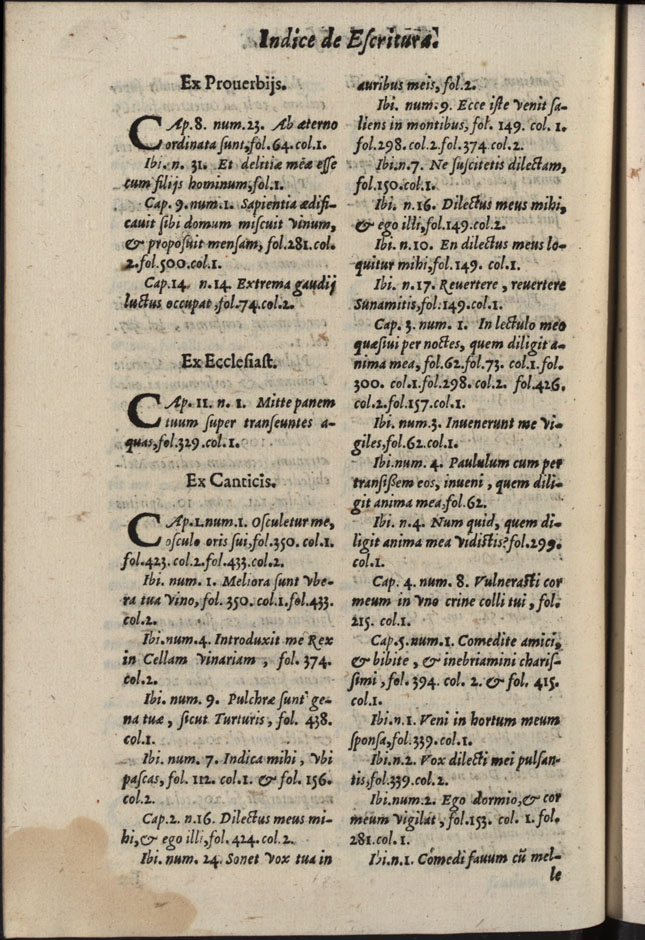 Indice de Eſcritura.
Ex Prouerbijs.
CAp.8. num.23. Ab æterno
ordinata ſunt, fol.64.col.1.
Ibi. n. 31. Et delitiæ mēæ eſſe
cum filijs hominum,fol.1.
Cap. 9.num.1. Sapientia ædifi-
cauit ſibi domum miſcuit vinum,
& propoſuit menſam, fol.281.col.
2.fol.500.col.1.
Cap.14 n.14. Extrema gaudij
luctus occupat,fol.74.col.2.
Ex Eccleſiaſt.
CAp. 11. n. 1. Mitte panem
tuum ſuper tranſeuntes a-
quas,fol.329.col.1.
Ex Canticis.
CAp.1.num.1. Oſculetur me,
oſculo oris ſui,fol.350. col.1.
fol.423.col.2.fol.433.col.2.
Ibi. num. 1. Meliora ſunt vbe-
ra tua vino, fol. 350. col.1.fol.433.
col.2.
Ibi.num.4. Introduxit me Rex
in Cellam vinariam , fol. 374.
col.2.
Ibi. num. 9. Pulchræ ſunt ge-
na tuæ , ſicut Turturis, fol. 438.
col.1.
Ibi. num. 7. Indica mihi , vbi
paſcas, fol. 112. col.1. & fol. 156.
col.2.
Cap.2. n.16. Dilectus meus mi-
hi,& ego illi,fol.424.col.2.
Ibi. num. 24. Sonet vox tua in
auribus meis, fol.2.
Ibi. num.9. Ecce iſte venit ſa-
liens in montibus, fol. 149. col. 1.
fol.298.col.2.fol.374 col.2.
Ibi.n.7. Ne ſuscitetis dilectam,
fol.150.col.1.
Ibi. n.16. Dilectus meus mihi,
& ego illi,fol.149.col.2.
Ibi.n.10. En dilectus meus lo-
quitur mihi,fol.149. col.1.
Ibi. n.17. Reuertere , reuertere
Sunamitis,fol.149.col.1.
Cap. 3. num. 1. In lectulo meo
quæſiui per noctes, quem diligit a-
nima mea, fol.62.fol.73. col.1.fol.
300. col.1.fol.298.col.2. fol.426.
col.2.fol.157.col.1.
Ibi. num.3. Inuenerunt me vi-
giles,fol.62.col.1.
Ibi.num. 4. Paululum cum per
tranſiſſem eos, inueni , quem dili-
git anima mea,fol.62.
Ibi. n.4. Num quid, quem di-
ligit anima mea vidiſtis?fol.299.
col.1.
Cap. 4. num. 8. Vulneraſti cor
meum in vno crine colli tui , fol.
215. col.1.
Cap.5.num.1. Comedite amici,
& bibite , & inebriamini chariſ-
ſimi , fol. 394. col. 2. & fol. 415.
col.1.
Ibi.n.1. Veni in hortum meum
ſponſa,fol.339.col.1.
Ibi.n.2. Vox dilecti mei pulſan-
tis,fol.339.col.2.
Ibi.num.2. Ego dormio,& cor
meum vigilat, fol.153. col. 1. fol.
281.col.1.
Ibi.n.1. Comedi fauum cū mel-
le